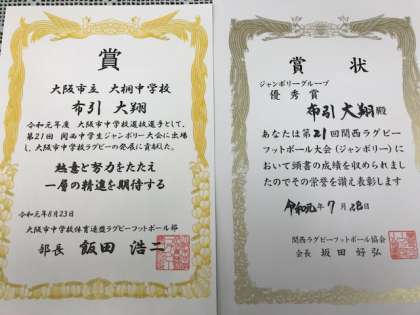 賞
大阪市立 大桐中学校
布引 大翔
令和元年度 大阪市中学校選抜選手として、
第21回 関西中学生ジャンボリー大会に出場
し、大阪市中学校ラグビーの発展に貢献した
熱意と努力をたたえ
一層の精進を期待する
令和元年8月23日
大阪市中学校体育連盟ラグビーフットボール部
部長 飯田 浩二
賞状
ジャンボリーグループ
優秀賞
布引 大翔 殿
あなたは第21回関西ラグビー
フットボール大会(ジャンボリー)に
おいて頭書の成績を収められまし
たのでその栄誉を讃え表彰します
令和元年7月28日
関西ラグビーフットボール協会
会長 坂田 好弘